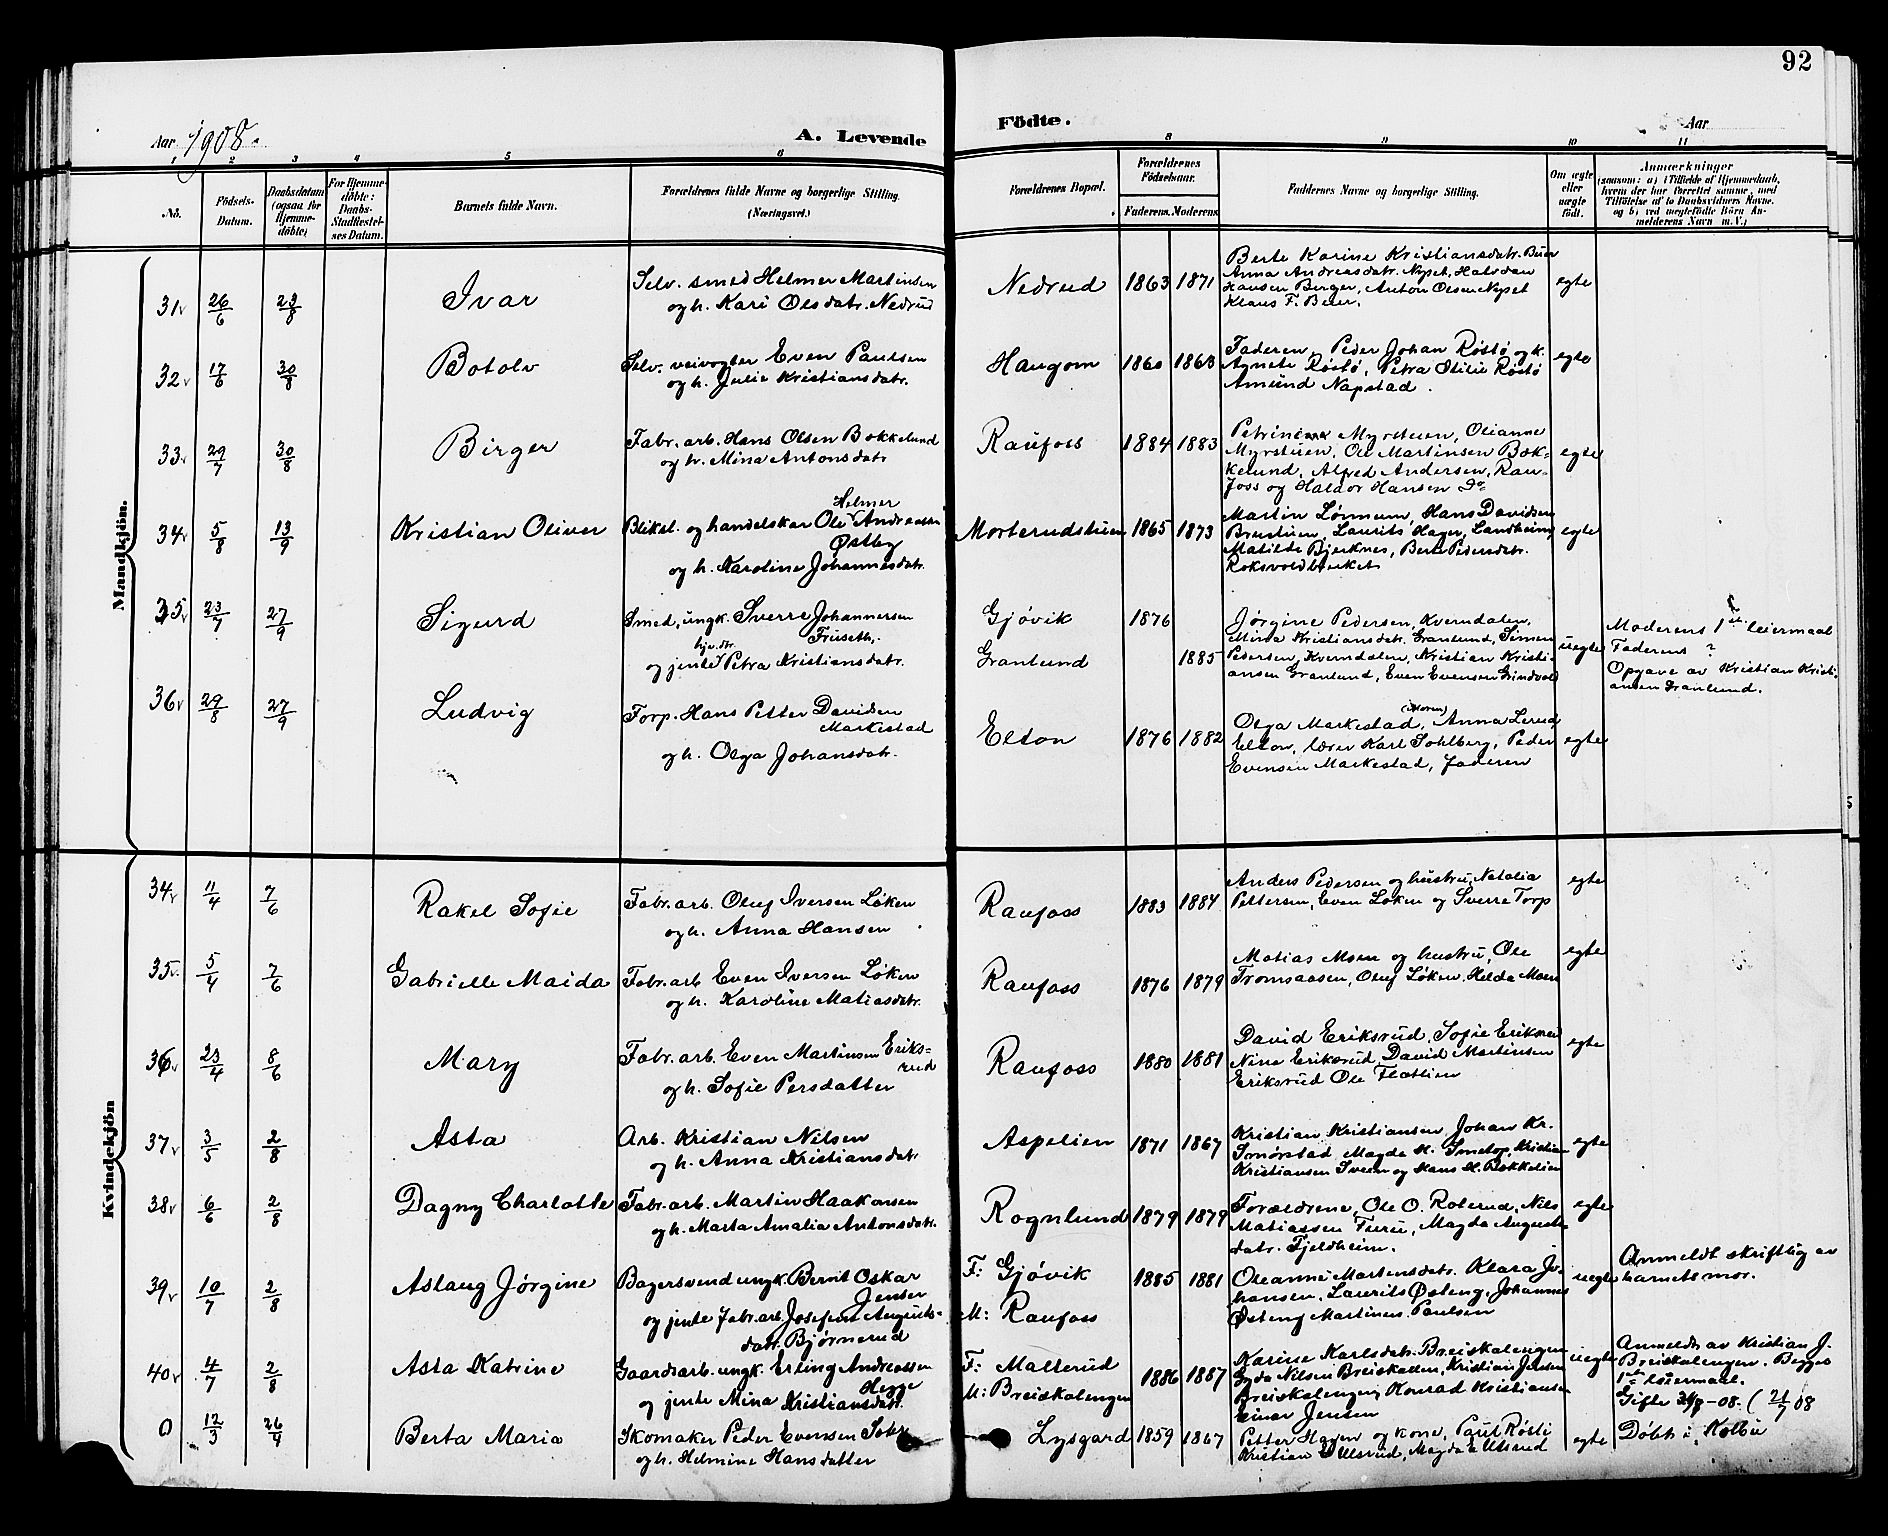 92
Aar 1908.
A. Levende
Födte.
Aar
1 2 3 4 5 6 8 9 10 11
No.
Födsels-Datum.
Daabsdatum (ogsaa for Hjemme-döbte)
For Hjemme-döbte: Daabs-Stadfæstel-ses Datum.
Barnets fulde Navn.
Forældrenes fulde Navne og borgerlige Stilling.
(Næringsvei.)
Forældrenes Bopæl.
Forældrenes Födselsaar.
Faderens. Moderens
Faddernes Navne og borgerlige Stilling.
Om ægte eller uægte født.
Anmærkninger
(saasom: a) i Tilfælde af Hjemmedaab,
hvem der har forrettet samme, med
Tilföielse af to Daabsvidners Navne.
og b) ved uægtefödte Börn An-
melderens Navn m. V.)
Mandkjön.
31 26/6 23/8 Ivar
Selv. smed Helmer Martinsen
og h. Kari Olsdatr. Nedrud
Nedrud 1863 1871
Berte Karine Kristiansdatr. Beier
Anna Andreasdatr. Nyset, Halvdan
Hansen Berger, Anton Olsen Nyset
Klaus F. Beier.
egte
32 17/6 30/8 Botolv
Selv. veivogter Even Paulsen
og h. Julie Kristiansdatr.
Haugom 1860 1863
Faderen, Peder Johan Røstø og k.
Agnete Røstø, Petra Otilie Røstø
Amund Napstad.
egte
33 29/7 30/8 Birger
Fabr. arb. Hans Olsen Bakkelund
og h. Mina Antonsdatr
Raufoss 1884 1883
Petrine Myrstuen, Oleanne
Myrstuen, Ole Martinsen Bak-
kelund, Alfred Andersen, Rau-
foss og Haldor Hansen Do
egte
34 5/8 13/9 Kristian Oliver
Helmer
Bliksl. og handelskar Ole Andreassen
Østby
og h. Karoline Johannesdatr.
Morterudstuen 1865 1873
Martin Lønnum, Hans Davidsen
Brustuen, Laurits Hager, Landheim
Matilde Bjerknes, Berte Pedersdatr.
Roksvoldbræket
egte
35 23/7 27/9 Sigurd
Smed, ungk. Sverre Johannersen
Fruseth.
hjv. dtr.
og jente Petra Kristiansdatr.
Gjøvik 1876
Granlund 1885
Jørgine Pedersen, Kverndalen,
Mina Kristiansdatr. Granlund, Simen
Pedersen, Kverndalen, Kristian Kristi-
ansen Granlund, Even Evensen Grindvold
uegte
Moderens 1ste leiermaal
Faderens ?
Opgave av Kristian Kristi-
ansen Granlund.
36 29/8 27/9 Ludvig
Torp. Hans Petter Davidsen
Markestad
og h. Olga Johansdatr.
Elton 1876 1882
(Moren)
Olga Markestad, Anna Lerud
Elton, lærer Karl Sohlberg, Peder
Evensen Markestad, Faderen
egte
Kvindekjön
34 11/4 7/6 Rakel Sofie
Fabr. arb. Oluf Iversen Løken
og h. Anna Hansen
Raufoss 1883 1884
Anders Pedersen og hustru, Natalia
Pettersen, Even Løken og Sverre Torp
egte
35 5/4 7/6 Gabrielle Maida
Fabr. arb Even Iversen Løken
og h. Karoline Matiasdatr.
Raufoss 1876 1879
Matias Moen og hustru, Ole
Tromsaasen, Oluf Løken, Helda Moen
egte
36 23/4 8/6 Mary
Fabr. arb. Even Martinsen Eriks-
rud
og h. Sofie Persdatter
Raufoss 1880 1881
David Eriksrud, Sofie Eriksrud
Nina Eriksrud, David Martinsen
Eriksrud Ole Flatlien
egte
37 3/5 2/8 Asta
Arb. Kristian Nilsen
og h. Anna Kristiansdatr.
Aspelien 1871 1867
Kristian Kristiansen, Johan Kr.
Smørstad, Magda H. Kristian
Kristiansen Sveen og Hans H. Bakkelien
egte
38 6/6 2/8 Dagny Charlotte
Fabr. arb. Martin Haakonsen
og h. Marta Amalia Antonsdatr.
Rognlund 1879 1879
Forældrene, Ole O. Roterud, Nils
Matiassen Furu, Magda Auguste-
datr. Fjeldheim.
egte
39 10/7 2/8 Aslaug Jørgine
Bagersvend ungk. Bernt Oskar
Jensen
og jente fabr. arb. Josefine Augusts-
datr. Bjørnerud
F: Gjøvik 1885 1881
M: Raufoss
Oleanne Martensdatr. Klara Jo-
hansen, Laurits Østeng, Johannes
Østeng Martinus Paulsen
uegte
Anmeldt skriftlig av
barnets mor.
40 4/7 2/8 Asta Katrine
Gaardsarb. ungk. Erling Andreassen
Hegge
og jente Mina Kristiansdatr.
F: Malterud
M: Breiskalengen 1886 1887
Karine Karlsdatr. Breiskalengen
Gyda Nilsen Breiskallen, Kristian Jensen
Breiskalengen, Konrad Kristiansen
Einar Jensen
uegte
Anmeldt av Kristian J.
Breiskalengen. Begges
1ste leiermaal.
Gifte -08. (21/7 08
0 12/3 26/4 Berta Maria
Skomaker Peder Evensen
og h. Helmine Hansdatter
Lysgard 1859 1867
Petter Hagen og kone, Paul Røsli
Kristian Ullsrud, Magda Ullsrud
egte
Døbt i Kolbu